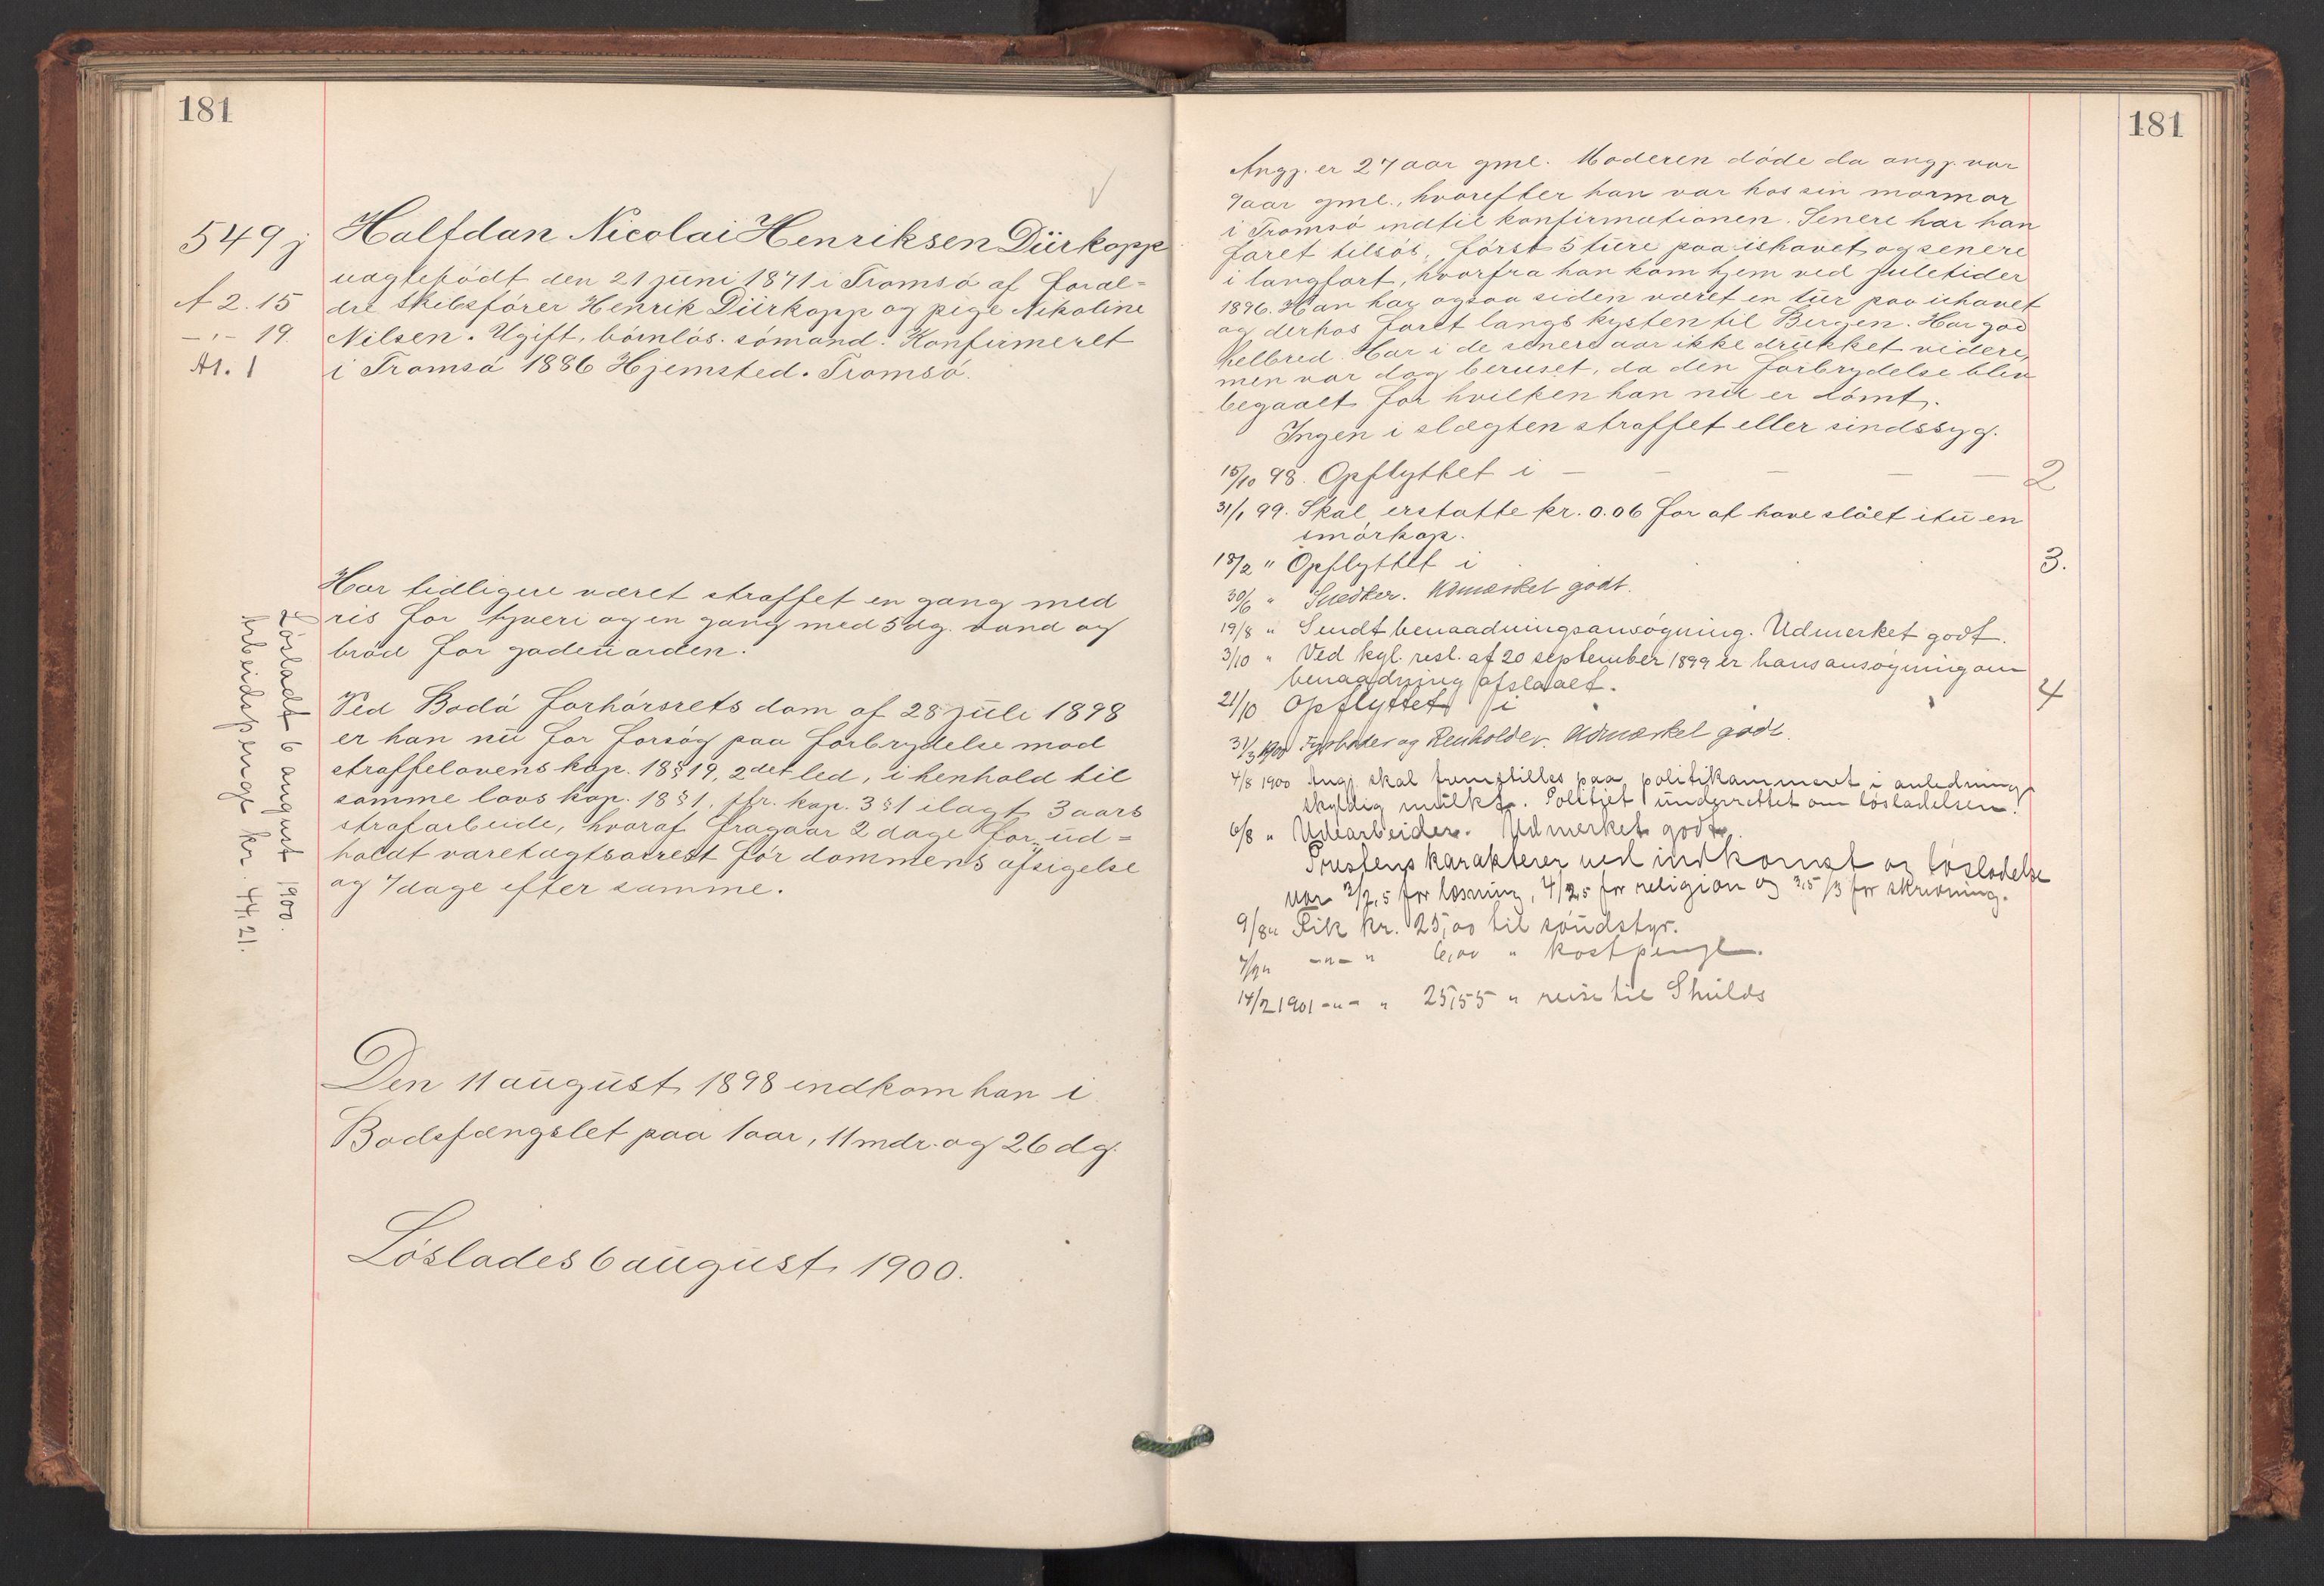 181
549j
A 2.15
-"- 19.
A1. 1
Halfdan Nicolai Henriksen Dürkopp
uægtefødt den 21 juni 1871 i Tromsø af foræl=
dre skibsfører Henrik Dürkopp og pige Nikoline
Nilsen. Ugift, børnløs. sømand. Konfirmeret
i Tromsø 1886 Hjemsted. Tromsø.
Har tidligere været straffet en gang med
ris for tyveri og en gang med 5 dg. vand og
brød for gadeuorden.
Ved Bodø forhørsrets dom af 28 juli 1898
er han nu for forsøg paa forbrydelse mod
straffelovens kap. 18 § 19, 2det led, i henhold til
samme lovs kap. 18 § 1. jfr. kap. 3 § 1 ilagt 3 aars
strafarbeide, hvoraf fragaar 2 dage for ud=
holdt varetægtsarrest før dommens afsigelse
og 7 dage efter samme.
Løsladt 6 august 1900.
Arbeidspenge kr. 44,21.
Den 11 august 1898 indkom han i
Bodsfængslet paa 1 aar, 11 mdr. og 26 dg.
Løslades 6 august 1900.
181
Angj. er 27 aar gml. Moderen døde da angj. var
9 aar gml., hvorefter han var hos sin mormor
i Tromsø indtil konfirmationen. Senere har han
faret tilsøs, først 5 ture paa ishavet og senere
i langfart, hvorfra han kom hjem ved juletider
1896. Han har ogsaa siden været en tur paa ishavet
og derhos faret langs kysten til Bergen. Har god
helbred. Har i de senere aar ikke drukket videre,
men var dog beruset, da den forbrydelse blev
begaaet for hvilken han nu er dømt.
Ingen i slægten straffet eller sindssyg.
15/10 98. Opflyttet i — — — — — 2
31/1 99. Skal erstatte kr. 0.06 for at have slået itu en
smørkop.
18/2 " Opflyttet i 3.
30/6 " Snedker. Udmærket godt.
19/8 " Sendt benaadningsansøgning. Udmerket godt.
3/10 " Ved kgl. resl. af 20 september 1899 er hans ansøgning om
benaadning afslaaet.
21/10 Opflyttet i 4
31/3 1900 Fyrbøder og Renholder. Udmærket godt.
4/8 1900 Angj. skal fremstilles paa politikammeret i anledning
skyldig mulkt. Politiet underrettet om løsladelsen.
6/8 " Udearbeider. Udmerket godt.
Prestens karakterer ved indkomst og løsladelse
var 3/2,5 for læsning, 4/2,5 for religion og 3,5/3 for skrivning.
9/8 " Fik kr. 25,00 til søudstyr.
7/9 " -"- " 6,00 " kostpenge.
14/2 1901 -"- " 25,55 " reise til Shields